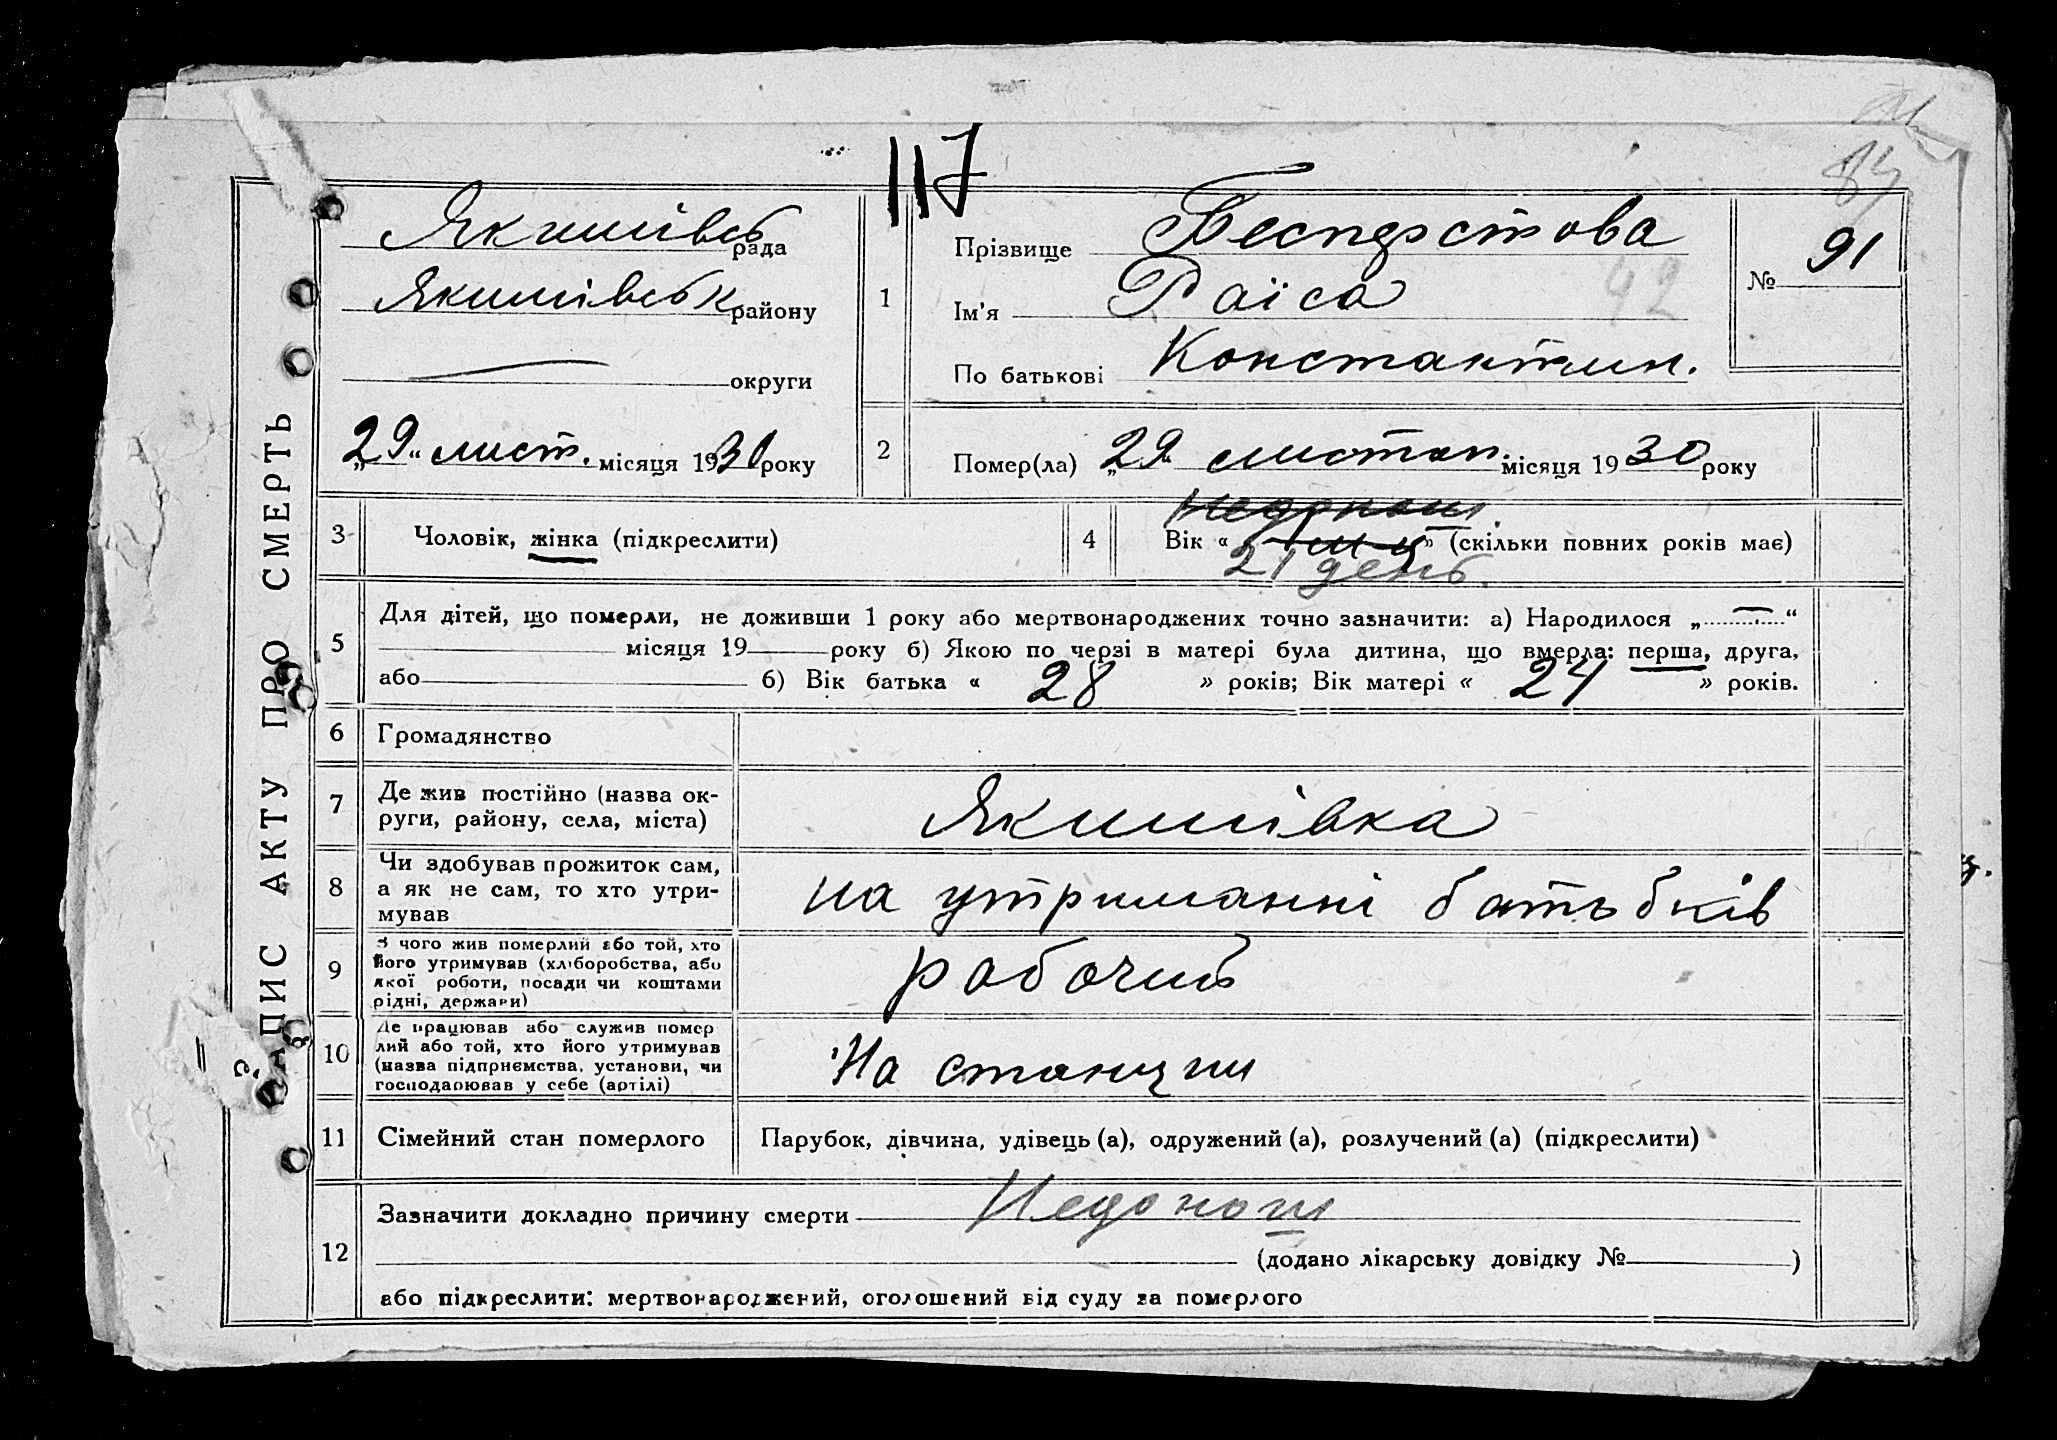 117
84
ЗАПИС АКТУ ПРО СМЕРТЬ
Якимівсь рада
Якимівськ району
округи
„29“ лист. місяця 1930 року
1
Прізвище Бесперстова
Ім'я Раїса
42
По батькові Константин.
№ 91
2
Помер(ла) „29“ листоп. місяця 1930 року
3
Чоловік, жінка (підкреслити)
4
Недонош.
Вік « » (скільки повних років має)
21 день.
5
Для дітей, що померли, не доживши 1 року або мертвонароджених точно зазначити: а) Народилося „ “
місяця 19 року б) Якою по черзі в матері була дитина, що вмерла: перша, друга,
або б) Вік батька « 28 » років; Вік матері « 24 » років.
6
Громадянство
7
Де жив постійно (назва ок-
руги, району, села, міста)
Якимівка
8
Чи здобував прожиток сам,
а як не сам, то хто утри-
мував
на утриманні батьбків
9
З чого жив померлий або той, хто
його утримував (хліборобства, або
якої роботи, посади чи коштами
рідні, держави)
рабочий
10
Де працював або служив помер
лий або той, хто його утримував
(назва підприємства, установи, чи
господарював у себе (артілі)
На станции
11
Сімейний стан померлого
Парубок, дівчина, удівець (а), одружений (а), розлучений (а) (підкреслити)
12
Зазначити докладно причину смерти Недонош
(додано лікарську довідку № )
або підкреслити: мертвонароджений, оголошений від суду за померлого